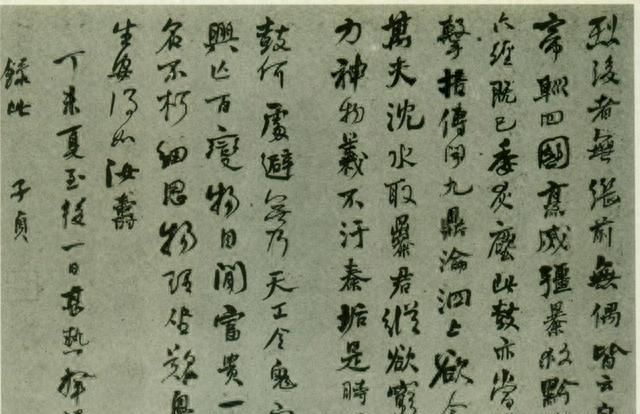 烈後者無繼前無偶皆云
帝巡四國烹滅彊暴救黔
六經既已委灰塵此鼓亦當
擊掊傳聞九鼎淪泗上欲
萬夫沈水取暴君縱欲窮
力神物義不汙秦垢是時
鼓何處避無乃天工令鬼
興亡百變物自閒富貴一
名不朽細思物理坐歎息
生安得如汝壽
丁未夏至後一日甚熱揮
錄此 子貞